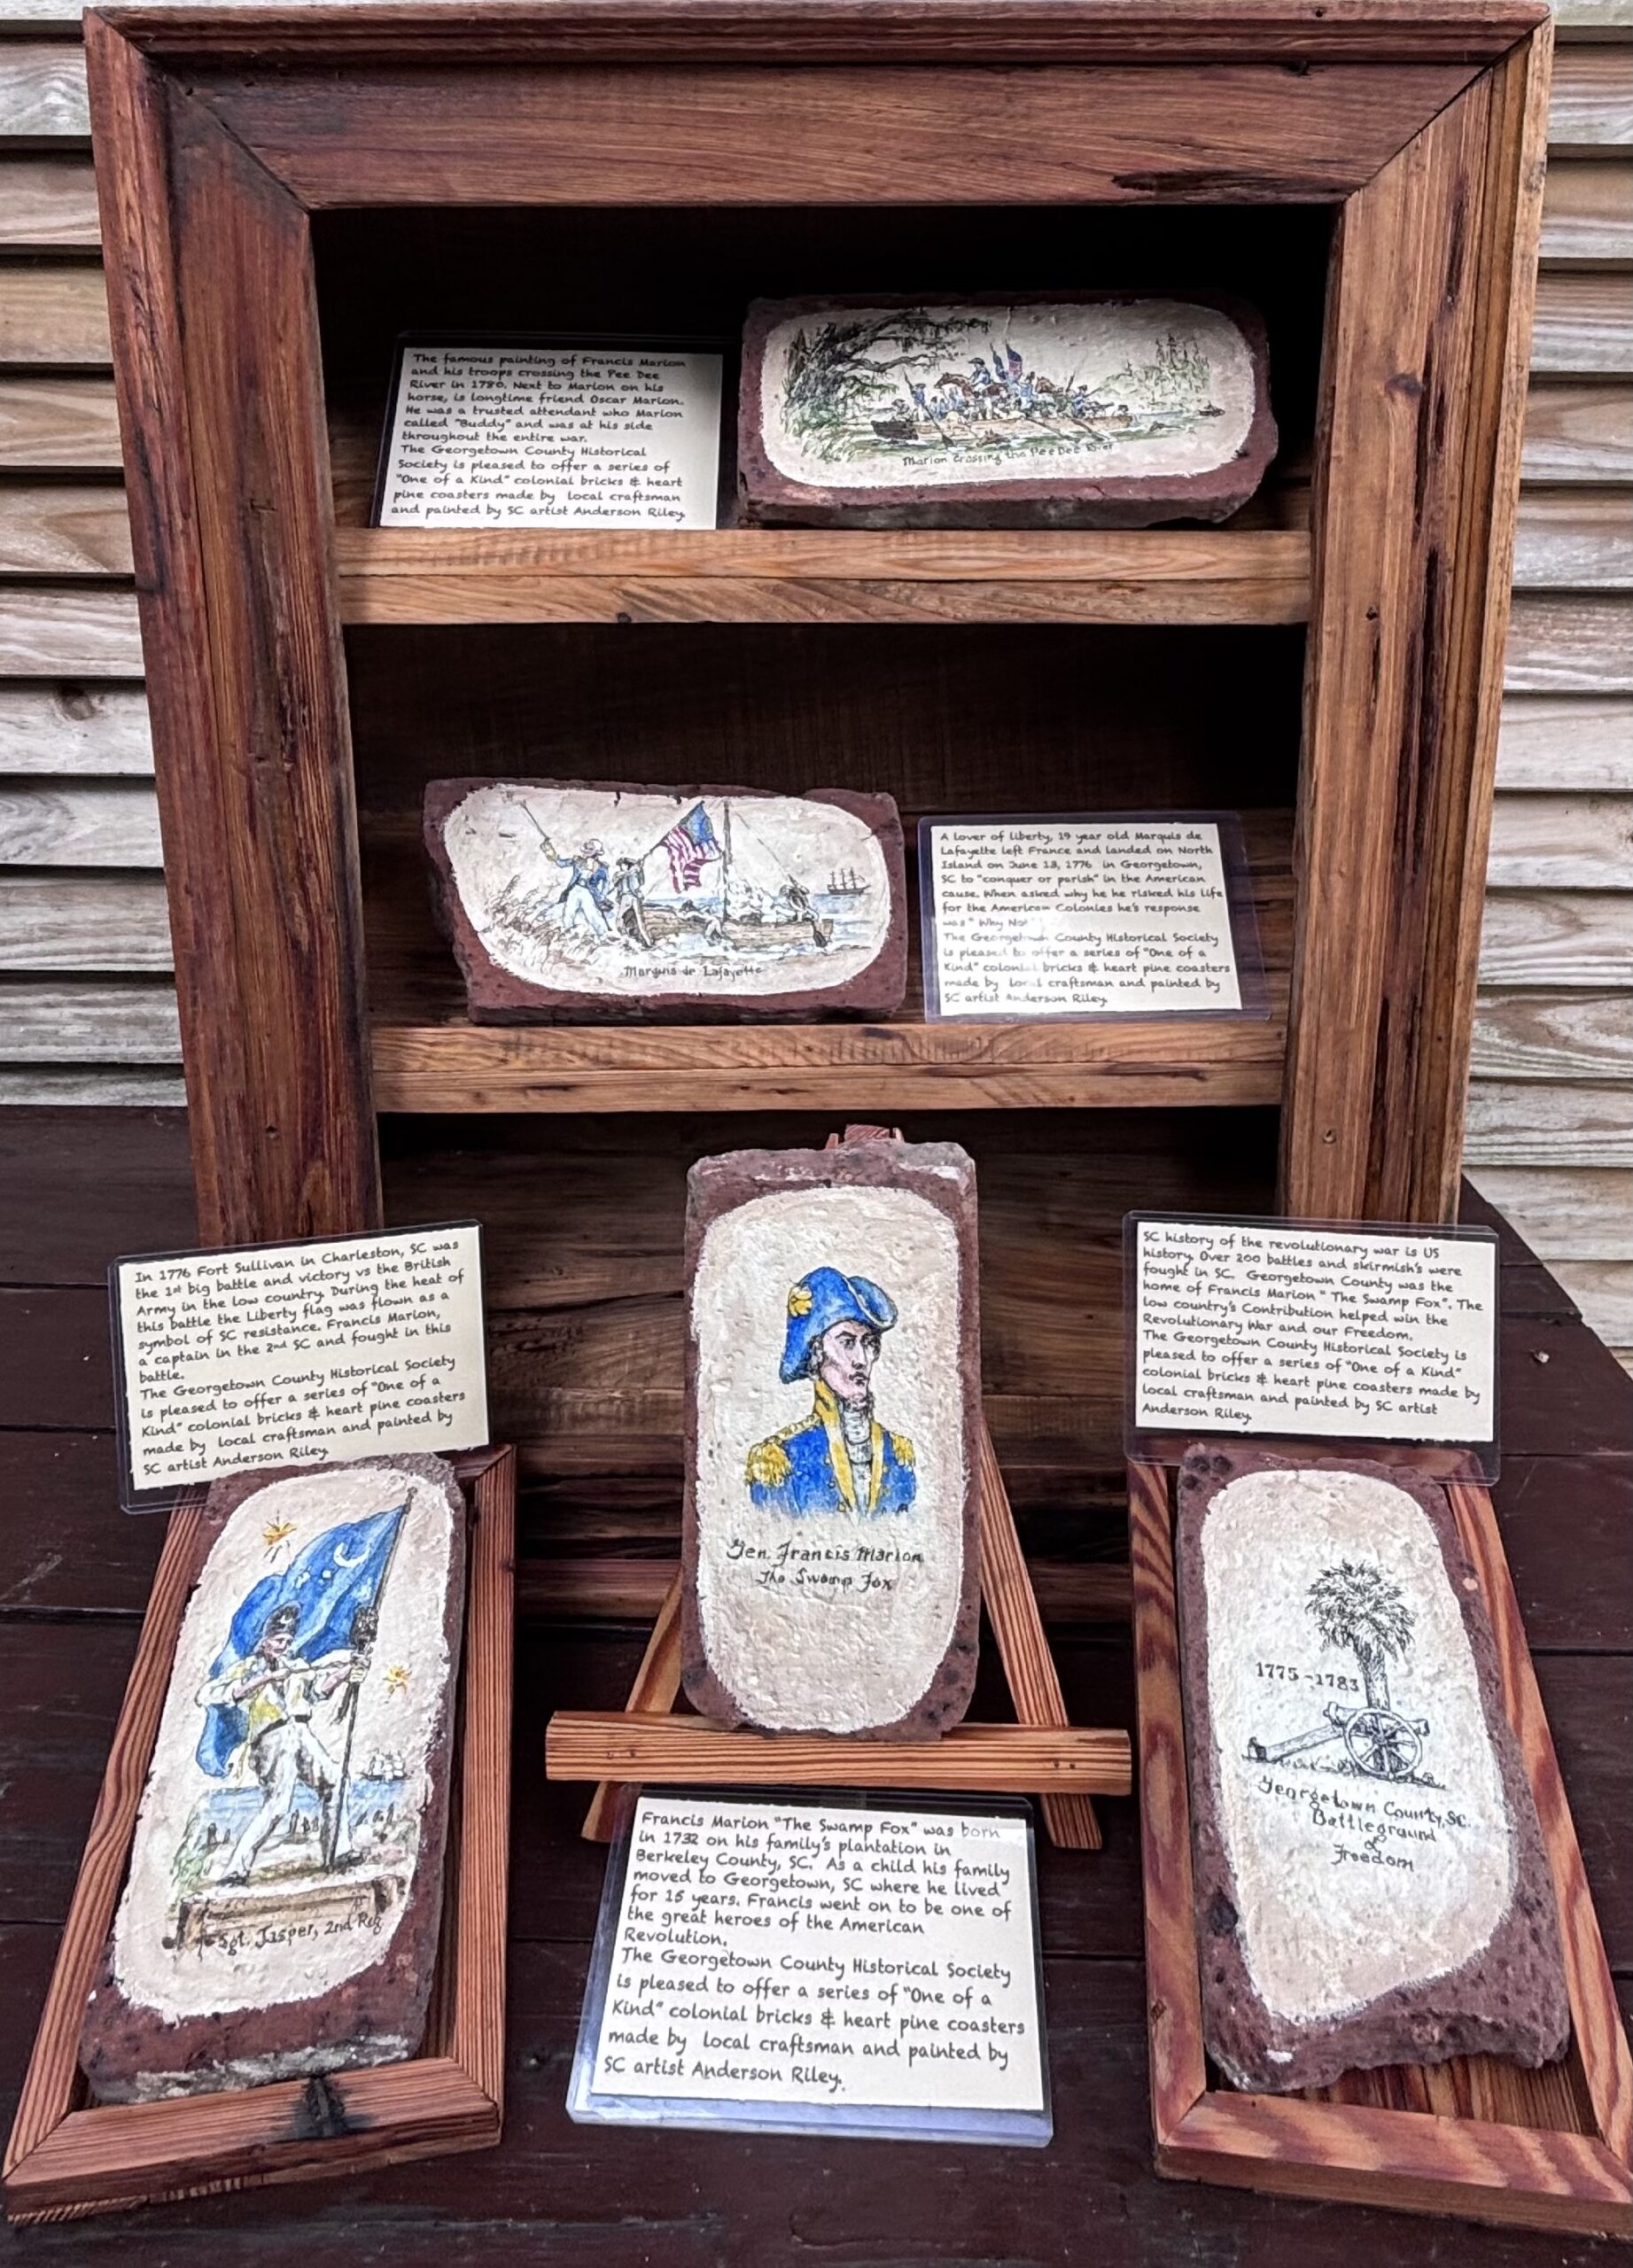 The famous painting of Francis Marion
and his troops crossing the Pee Dee
River in 1780. Next to Marion on his
horse, is longtime friend Oscar Marion.
He was a trusted attendant who Marion
called "Buddy" and was at his side
throughout the entire war.
The Georgetown County Historical
Society is pleased to offer a series of
"One of a Kind" colonial bricks & heart
pine coasters made by local craftsman
and painted by SC artist Anderson Riley.
Marion Crossing the Pee Dee River
Marquis de Lafayette
A lover of liberty, 19 year old Marquis de
Lafayette left France and landed on North
Island on June 13, 1776 in Georgetown,
SC to "conquer or parish" in the American
cause. When asked why he he risked his life
for the American Colonies he's response
was "Why Not"
The Georgetown County Historical Society
is pleased to offer a series of "One of a
Kind" colonial bricks & heart pine coasters
made by local craftsman and painted by
SC artist Anderson Riley.
In 1776 Fort Sullivan in Charleston, SC was
the 1st big battle and victory vs the British
Army in the low country. During the heat of
this battle the Liberty flag was flown as a
symbol of SC resistance. Francis Marion,
a captain in the 2nd SC and fought in this
battle.
The Georgetown County Historical Society
is pleased to offer a series of "One of a
Kind" colonial bricks & heart pine coasters
made by local craftsman and painted by
SC artist Anderson Riley.
Sgt. Jasper, 2nd Reg
Gen. Francis Marion
The Swamp Fox
Francis Marion "The Swamp Fox" was born
in 1732 on his family's plantation in
Berkeley County, SC. As a child his family
moved to Georgetown, SC where he lived
for 15 years. Francis went on to be one of
the great heroes of the American
Revolution.
The Georgetown County Historical Society
is pleased to offer a series of "One of a
Kind" colonial bricks & heart pine coasters
made by local craftsman and painted by
SC artist Anderson Riley.
SC history of the revolutionary war is US
history. Over 200 battles and skirmish's were
fought in SC. Georgetown County was the
home of Francis Marion "The Swamp Fox". The
low country's Contribution helped win the
Revolutionary War and our Freedom.
The Georgetown County Historical Society is
pleased to offer a series of "One of a Kind"
colonial bricks & heart pine coasters made by
local craftsman and painted by SC artist
Anderson Riley.
1775-1783
Georgetown County, SC.
Battleground
of
Freedom